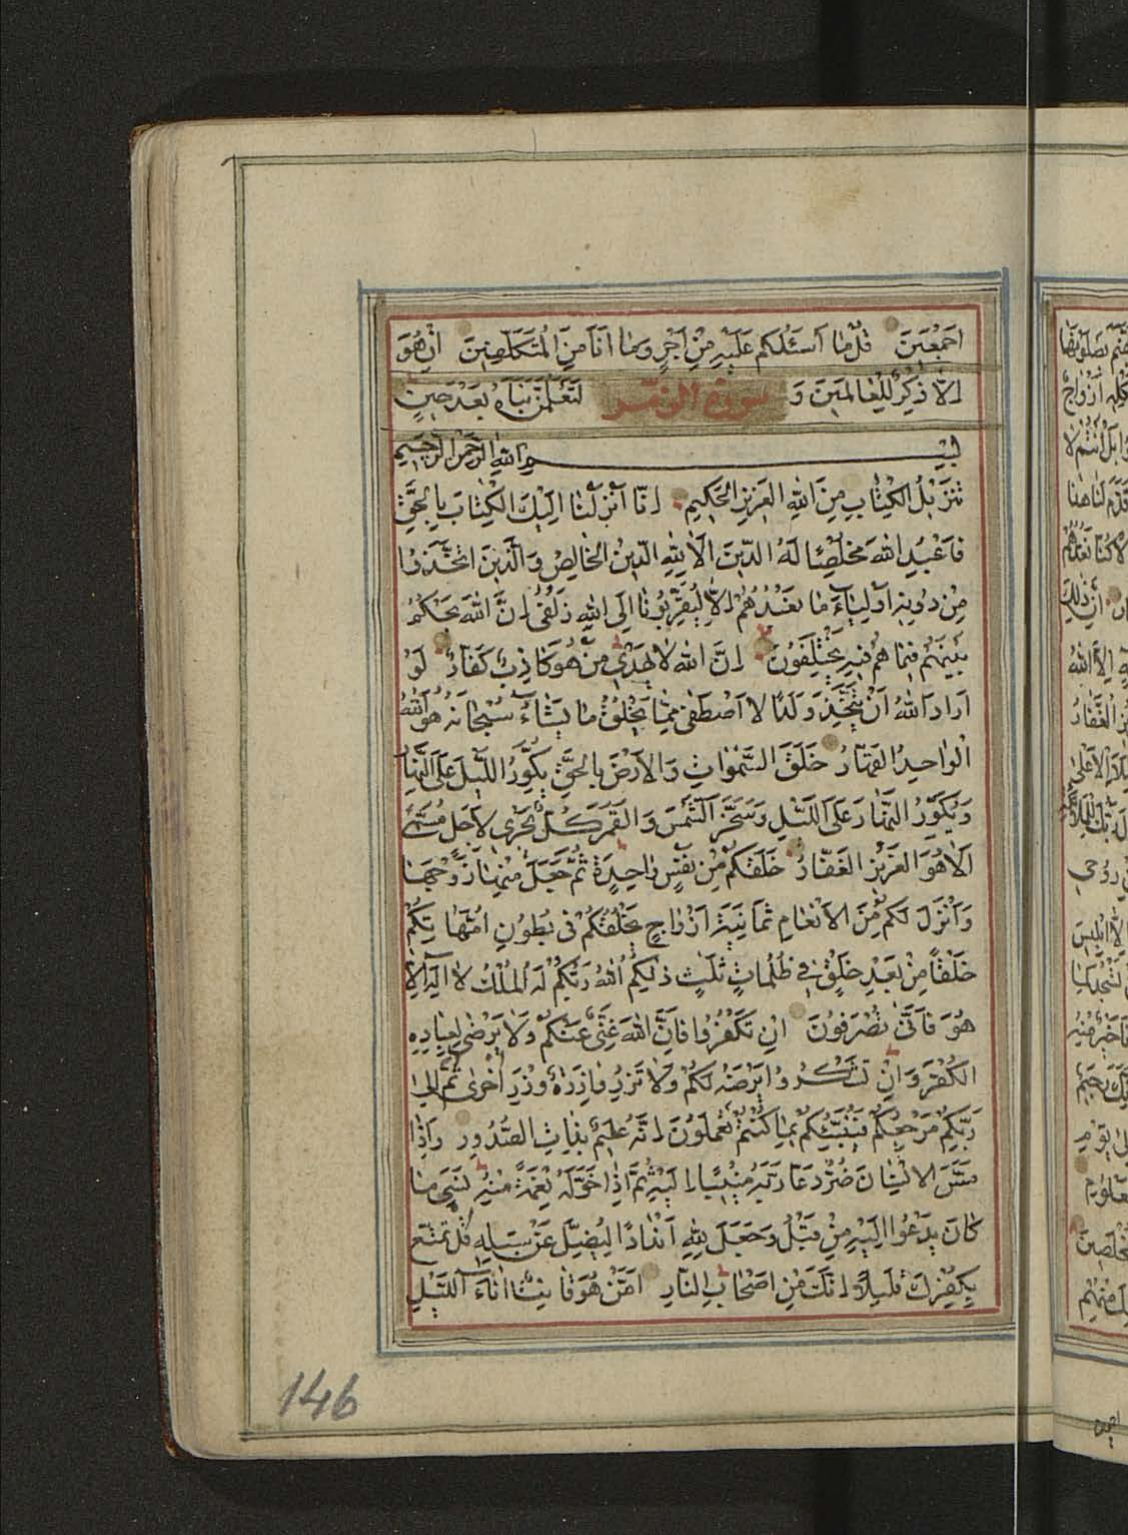 اَجْمَعِينَ قُلْ مَا اَسْئَلُكُمْ عَلَيْهِ مِنْ اَجْرٍ وَمَا اَنَا مِنَ الْمُتَكَلِّفِينَ اِنْ هُوَ
اِلَّا ذِكْرٌ لِلْعَالَمِينَ وَ سورة الزمر لَتَعْلَمُنَّ نَبَاَهُ بَعْدَ حِينٍ
بِسْمِ اللهِ الرَّحْمٰنِ الرَّحِيمِ
تَنْزِيلُ الْكِتَابِ مِنَ اللهِ الْعَزِيزِ الْحَكِيمِ اِنَّا اَنْزَلْنَا اِلَيْكَ الْكِتَابَ بِالْحَقِّ
فَاعْبُدِ اللهَ مُخْلِصًا لَهُ الدِّينَ اَلَا لِلّٰهِ الدِّينُ الْخَالِصُ وَالَّذِينَ اتَّخَذُوا
مِنْ دُونِهِ اَوْلِيَاءَ مَا نَعْبُدُهُمْ اِلَّا لِيُقَرِّبُونَا اِلَى اللهِ زُلْفٰى اِنَّ اللهَ يَحْكُمُ
بَيْنَهُمْ فِيمَا هُمْ فِيهِ يَخْتَلِفُونَ اِنَّ اللهَ لَا يَهْدِي مَنْ هُوَ كَاذِبٌ كَفَّارٌ لَوْ
اَرَادَ اللهُ اَنْ يَتَّخِذَ وَلَدًا لَاصْطَفٰى مِمَّا يَخْلُقُ مَا يَشَاءُ سُبْحَانَهُ هُوَ اللهُ
الْوَاحِدُ الْقَهَّارُ خَلَقَ السَّمٰوَاتِ وَالْاَرْضَ بِالْحَقِّ يُكَوِّرُ اللَّيْلَ عَلَى النَّهَارِ
وَيُكَوِّرُ النَّهَارَ عَلَى اللَّيْلِ وَسَخَّرَ الشَّمْسَ وَالْقَمَرَ كُلٌّ يَجْرِي لِاَجَلٍ مُسَمًّى
اَلَا هُوَ الْعَزِيزُ الْغَفَّارُ خَلَقَكُمْ مِنْ نَفْسٍ وَاحِدَةٍ ثُمَّ جَعَلَ مِنْهَا زَوْجَهَا
وَاَنْزَلَ لَكُمْ مِنَ الْاَنْعَامِ ثَمَانِيَةَ اَزْوَاجٍ يَخْلُقُكُمْ فِي بُطُونِ اُمَّهَاتِكُمْ
خَلْقًا مِنْ بَعْدِ خَلْقٍ فِي ظُلُمَاتٍ ثَلٰثٍ ذٰلِكُمُ اللهُ رَبُّكُمْ لَهُ الْمُلْكُ لَا اِلٰهَ اِلَّا
هُوَ فَاَنّٰى تُصْرَفُونَ اِنْ تَكْفُرُوا فَاِنَّ اللهَ غَنِيٌّ عَنْكُمْ وَلَا يَرْضٰى لِعِبَادِهِ
الْكُفْرَ وَاِنْ تَشْكُرُوا يَرْضَهُ لَكُمْ وَلَا تَزِرُ وَازِرَةٌ وِزْرَ اُخْرٰى ثُمَّ اِلٰى
رَبِّكُمْ مَرْجِعُكُمْ فَيُنَبِّئُكُمْ بِمَا كُنْتُمْ تَعْمَلُونَ اِنَّهُ عَلِيمٌ بِذَاتِ الصُّدُورِ وَاِذَا
مَسَّ الْاِنْسَانَ ضُرٌّ دَعَا رَبَّهُ مُنِيبًا اِلَيْهِ ثُمَّ اِذَا خَوَّلَهُ نِعْمَةً مِنْهُ نَسِيَ مَا
كَانَ يَدْعُوا اِلَيْهِ مِنْ قَبْلُ وَجَعَلَ لِلّٰهِ اَنْدَادًا لِيُضِلَّ عَنْ سَبِيلِهِ قُلْ تَمَتَّعْ
بِكُفْرِكَ قَلِيلًا اِنَّكَ مِنْ اَصْحَابِ النَّارِ اَمَّنْ هُوَ قَانِتٌ اٰنَاءَ اللَّيْلِ
146